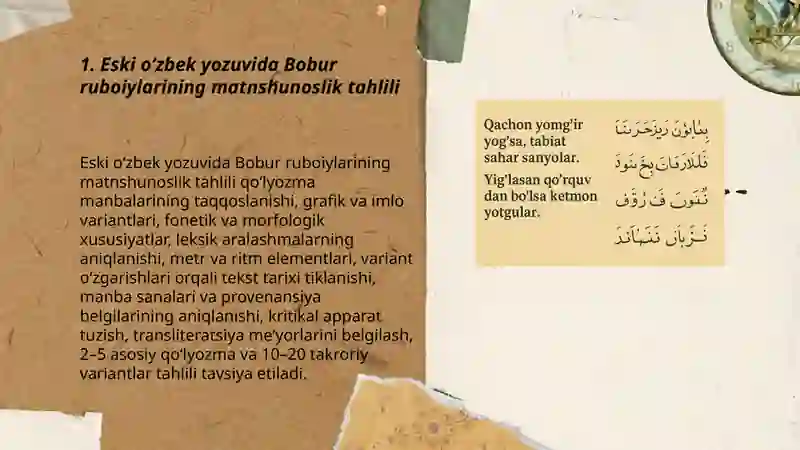 1. Eski oʻzbek yozuvida Bobur
ruboiylarining matnshunoslik tahlili
Eski oʻzbek yozuvida Bobur ruboiylarining
matnshunoslik tahlili qoʻlyozma
manbalarining taqqoslanishi, grafik va imlo
variantlari, fonetik va morfologik
xususiyatlar, leksik aralashmalarning
aniqlanishi, metr va ritm elementlari, variant
oʻzgarishlari orqali tekst tarixi tiklanishi,
manba sanalari va provenansiya
belgilarining aniqlanishi, kritikal apparat
tuzish, transliteratsiya meʼyorlarini belgilash,
2–5 asosiy qoʻlyozma va 10–20 takroriy
variantlar tahlili tavsiya etiladi.
Qachon yomg'ir
yog'sa, tabiat
sahar sanyolar.
Yig'lasan qo'rquv
dan bo'lsa ketmon
yotgular.